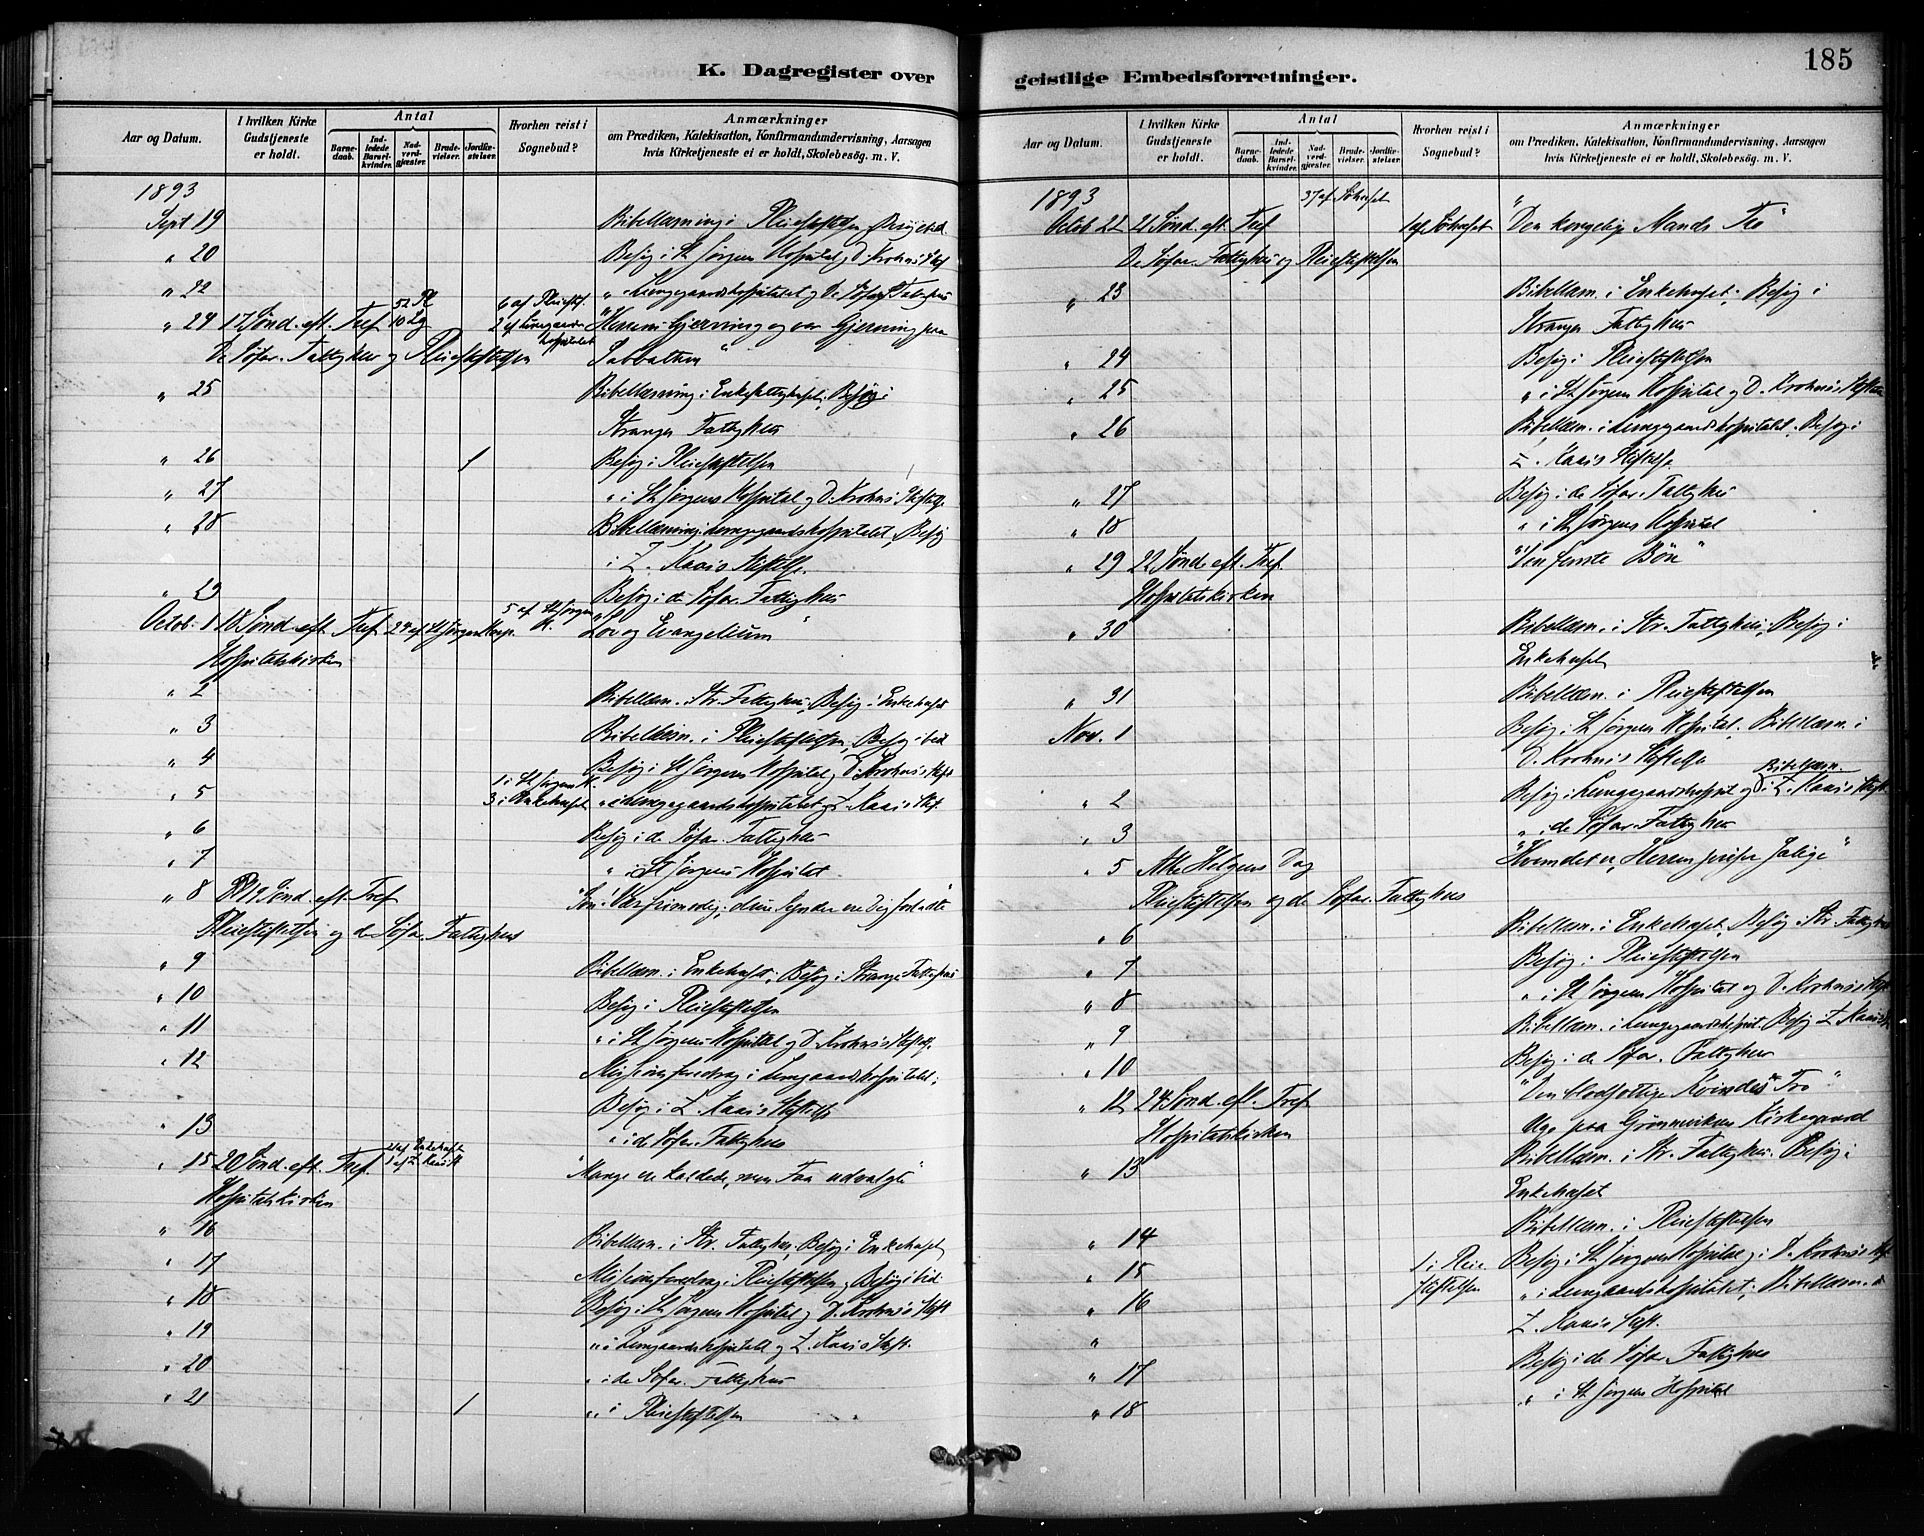 K. Dagregister over
Aar og Datum.
I hvilken Kirke Gudstjeneste er holdt.
Antal
Barnedaab.
Indledede Barselkvinder.
Nadverdgjester.
Brudevielser.
Jordfæstelser.
Hvorhen reist i Sognebud?
Anmærkninger
om Prædiken, Katekisation, Konfirmandundervisning, Aarsagen
hvis Kirketjeneste ei er holdt, Skolebesög. m. V.
1893
Sept 19 Bibellæsning i Pleiestiftelsen
" 20 Besög i St Jørgens Hospital og D. Krohns Stift
" 22 " Lungegaardshospitalet og De Søfar. Fattighus
" 24 17 Sønd. eft. Tref. 52 Pl 10 Lg 6 af Pleiestif. 2 af Lungegaardshospitalet "Herrens Gjerning og vor Gjerning paa
De Søfar. Fattighus og Pleiestiftelsen Sabbathen"
" 25 Bibellæsning i Enkefattighuset; Besøg i
Stranges Fattighus
" 26 1 Besøg i Pleiestiftelsen
" 27 " i St Jørgens Hospital og D. Krohns Stiftelse
" 28 Bibellæsning i Lungegaardshospitalet, Besøg
i Z. Kaaes Stiftelse
" 29 Besøg i de Søfar. Fattighus
Octob. 1 18 Sønd. eft. Tref. 24 af St Jørgens Hosp. 5 af St Jørgens H. "Lov og Evangelium"
Hospitalskirken
" 2 Bibellæsn. Str. Fattighus; Besøg i Enkehuset
" 3 Bibellæsn. i Pleiestiftelsen, Besøg ibid
" 4 Besøg i St Jørgens Hospital og D. Krohns Stift
" 5 1 i St Jørgens H. 3 i Enkehuset " i Lungegaardshospitalet og Z. Kaaes Stift.
" 6 Besøg i de Søfar. Fattighus
" 7 " i St Jørgens Hospital
" 8 19 Sønd. eft. Tref "Søn! Vær frimodig; dine Synder ere Dig forladte"
Pleiestiftelsen og de Søfar. Fattighus
" 9 Bibellæsn. i Enkehuset; Besøg i Stranges Fattighus
" 10 Besøg i Pleiestiftelsen
" 11 " i St Jørgens Hospital og D. Krohns Stiftelse
" 12 Missionsforedrag i Lungegaardshospitalet;
Besøg i Z. Kaaes Stiftelse
" 13 " i de Søfar. Fattighus
" 15 20 Sønd. eft. Tref. "Mange ere kaldede, men Faa udvalgte"
Hospitalskirken
" 16 Bibellæsn. i Str. Fattighus; Besøg i Enkehuset
" 17 Missionsforedrag i Pleiestiftelsen og Besøg ibid.
" 18 Besøg i St Jørgens Hospital og D. Krohns Stift
" 19 " i Lungegaardshospitalet og Z. Kaaes Stift.
" 20 " i de Søfar. Fattighus
" 21 1 " i Pleiestiftelsen
geistlige Embedsforretninger.
185
Aar og Datum.
I hvilken Kirke Gudstjeneste er holdt.
Antal
Barnedaab.
Indledede Barselkvinder.
Nadverdgjester.
Brudevielser.
Jordfæstelser.
Hvorhen reist i Sognebud?
Anmærkninger
om Prædiken, Katekisation, Konfirmandundervisning, Aarsagen
hvis Kirketjeneste ei er holdt, Skolebesög. m. V.
1893
Octob 22 21 Sønd. eft. Tref "Den kongelige Mands Tro"
De Søfar. Fattighus og Pleiestiftelsen
" 23 Bibellæsn. i Enkehuset; Besøg i
Stranges Fattighus
" 24 Besøg i Pleiestiftelsen
" 25 " i St Jørgens Hospital og D. Krohns Stiftelse
" 26 Bibellæsn. i Lungegaardshospitalet. Besøg i
Z. Kaaes Stiftelse
" 27 Besøg i de Søfar. Fattighus
" 18 " i St Jørgens Hospital
" 29 22 Sønd. eft. Tref. "Den første Bøn"
Hospitalskirken
" 30 Bibellæsn. i Str. Fattighus; Besøg i
Enkehuset
" 31 Bibellæsn. i Pleiestiftelsen
Nov. 1 Besøg i St Jørgens Hospital. Bibellæsn. i
D. Krohns Stiftelse
" 2 Besøg i Lungegaardshospit. og Bibellæsn. i Z. Kaaes Stift
" 3 " i de Søfar. Fattighus
" 5 Alle Helgens Dag "Hvem det er, Herren priser Salige"
Pleiestiftelsen og de Søfar. Fattighus
" 6 Bibellæsn. i Enkehuset, Besøg i Str. Fattighus
" 7 Besøg i Pleiestiftelsen
" 8 " i St Jørgens Hospital og D. Krohns Stift
" 9 Bibellæsn. i Lungegaardshospit. Besøg Z. Kaaes St
" 10 Besøg i de Søfar. Fattighus
" 12 24 Sønd. eft. Tref "Den blodsottige Kvindes Tro"
Hospitalskirken Uge paa Grønnevikens Kirkegaard
" 13 Bibellæsn. i Str. Fattighus. Besøg i
Enkehuset
" 14 Bibellæsn. i Pleiestiftelsen
" 15 1 i Pleiestiftelsen Besøg i St Jørgens Hospital og i D. Krohns Stift
" 16 " i Lungegaardshospitalet; Bibellæsn. i
" Z. Kaaes Stift.
" 17 Besøg i de Søfar. Fattighus
" 18 " i St Jørgens Hospital